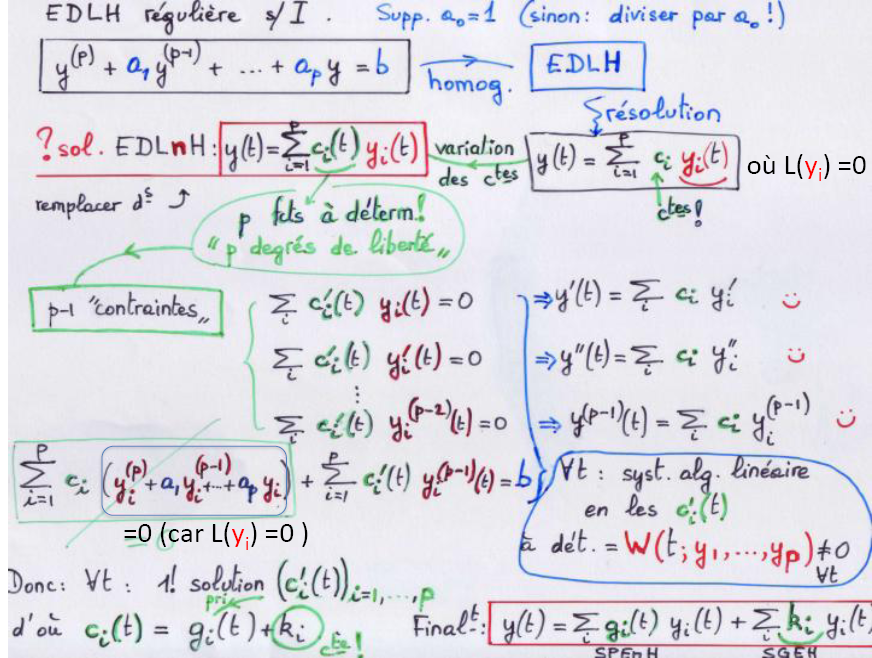 EDLH régulière s/ I. Supp. a₀=1 (sinon: diviser par a₀!)
y⁽ᵖ⁾ + a₁y⁽ᵖ⁻¹⁾ + ... + aₚy = b homog. EDLH
résolution
? sol. EDLnH: y(t)=∑ᵢ₌₁ᵖ cᵢ(t) yᵢ(t) variation des cᵗᵉˢ y(t) = ∑ᵢ₌₁ᵖ cᵢ yᵢ(t) où L(yᵢ) =0
remplacer dˢ cᵗᵉˢ!
p fcts à déterm!
"p degrés de liberté„
p-1 "contraintes„
∑ᵢ cᵢ'(t) yᵢ(t) = 0 ⇒ y'(t) = ∑ᵢ cᵢ yᵢ'
∑ᵢ cᵢ'(t) yᵢ'(t) = 0 ⇒ y''(t) = ∑ᵢ cᵢ yᵢ''
⋮
∑ᵢ cᵢ'(t) yᵢ⁽ᵖ⁻²⁾(t) = 0 ⇒ y⁽ᵖ⁻¹⁾(t) = ∑ᵢ cᵢ yᵢ⁽ᵖ⁻¹⁾
∑ᵢ₌₁ᵖ cᵢ (yᵢ⁽ᵖ⁾+a₁yᵢ⁽ᵖ⁻¹⁾+...+aₚyᵢ) + ∑ᵢ₌₁ᵖ cᵢ'(t) yᵢ⁽ᵖ⁻¹⁾(t) = b
=0 (car L(yᵢ) =0 )
∀t : syst. alg. linéaire
en les cᵢ'(t)
à dét. = W(t; y₁,...,yₚ) ≠0
∀t
Donc: ∀t : 1! solution (cᵢ'(t))ᵢ₌₁,...,ₚ
pri
d'où cᵢ(t) = gᵢ(t) + kᵢ cᵗᵉ! Finalᵗ: y(t) = ∑ᵢ gᵢ(t) yᵢ(t) + ∑ᵢ kᵢ yᵢ(t)
SPEnH SGEH